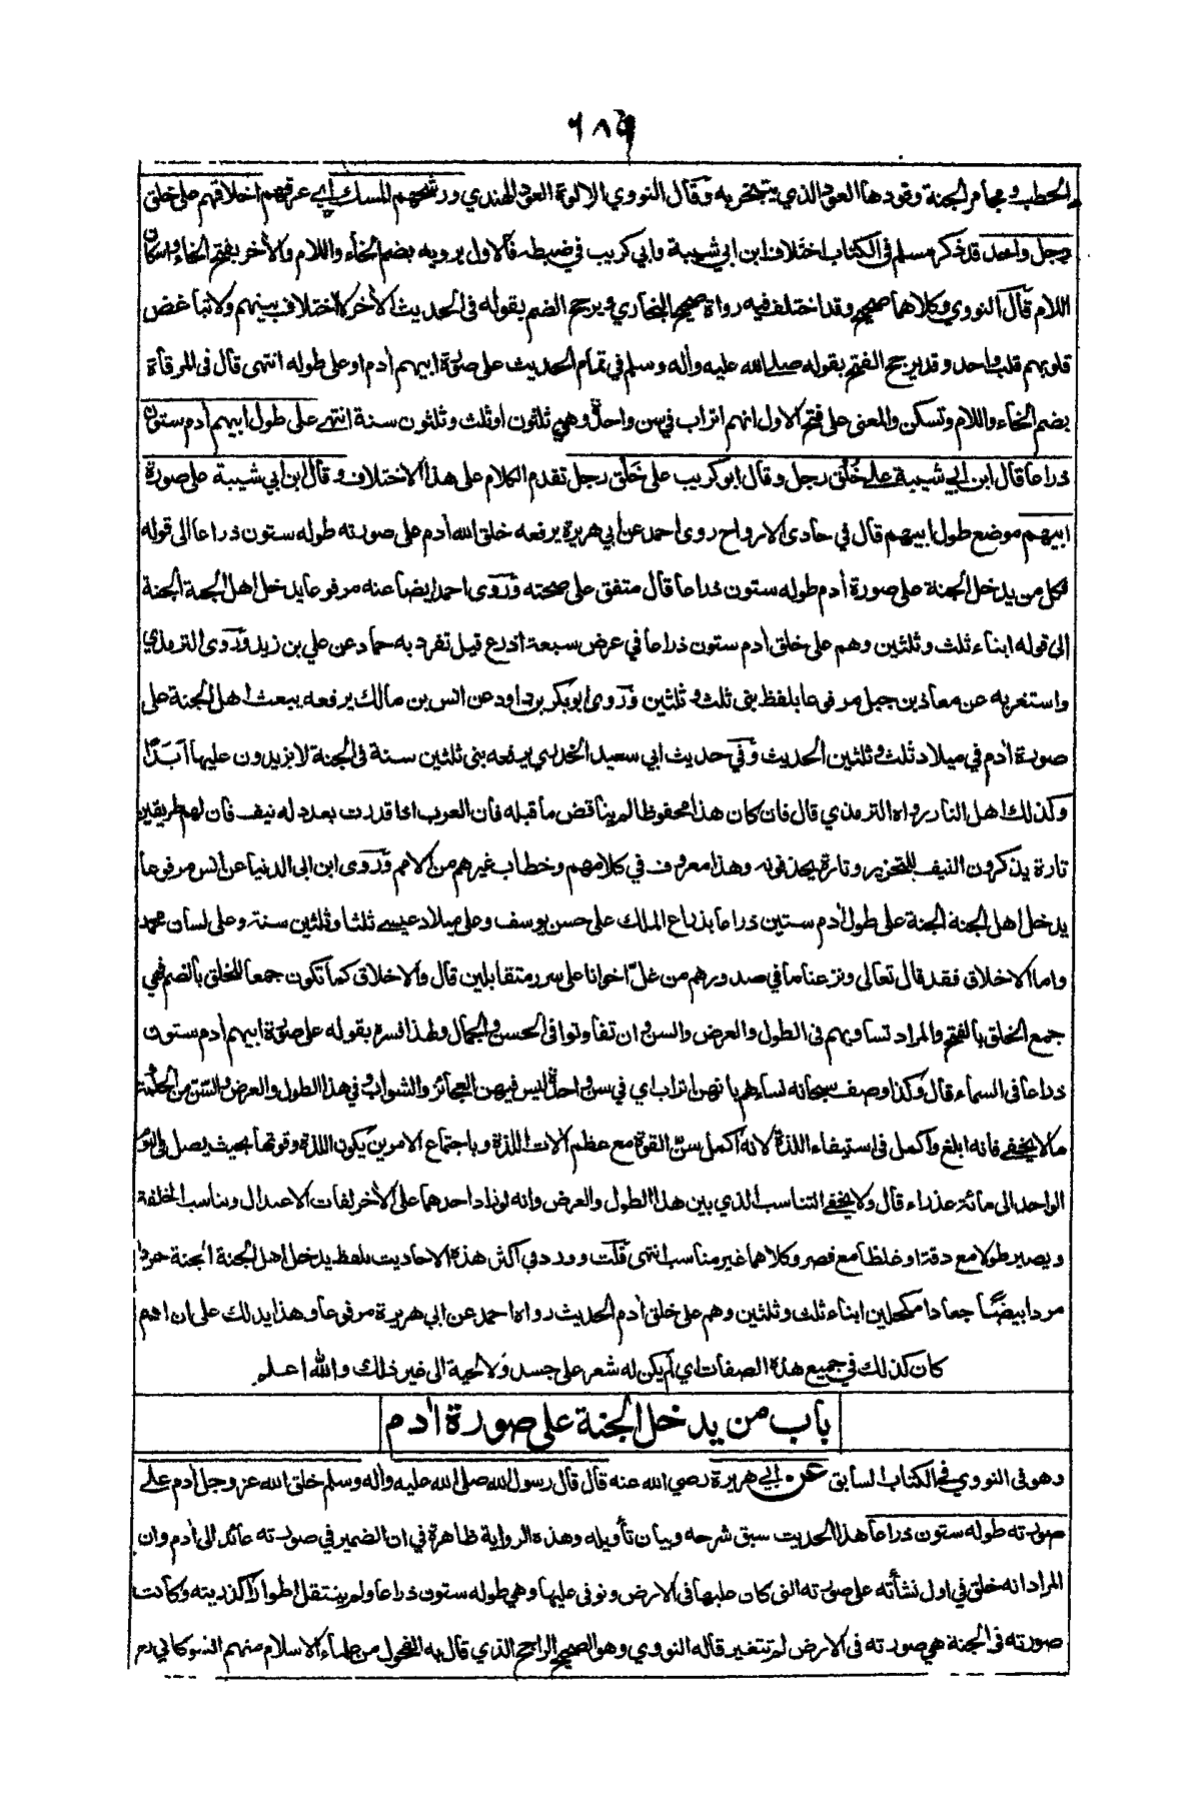 الحطب ومجامر الجنة وقودها العود الذي يتبخر به وقال النووي الالوة العود الهندي ورشحهم المسك اي عرقهم اخلاقهم على خلق
رجل واحد قد ذكر مسلم في الكتاب اختلاف ابن ابي شيبة وابي كريب في ضبطه فالاول يرويه بضم الخاء واللام والأخر بفتح الخاء واسكان
اللام قال النووي وكلاهما صحيح وقد اختلف فيه رواة صحيح البخاري ويرجح الضم بقوله في الحديث الأخر لا اختلاف بينهم ولا تباغض
قلوبهم قلب واحد وقد يرجح الفتح بقوله صلى الله عليه وأله وسلم في تمام الحديث على صورة ابيهم أدم او على طوله انتهى قال في المرقاة
بضم الخاء واللام وتسكن والمعنى على فتح الاول انهم اتراب في سن واحد وهي ثلثون او ثلث وثلثون سنة انتهى على طول ابيهم أدم ستون
ذراعا قال ابن ابي شيبة على خُلُق رجل وقال ابو كريب على خَلْق رجل تقدم الكلام على هذا الاختلاف وقال ابن ابي شيبة على صورة
ابيهم موضع طول ابيهم قال في حادى الارواح روى احمد عن ابي هريرة يرفعه خلق الله أدم على صورته طوله ستون ذراعا الى قوله
فكل من يدخل الجنة على صورة أدم طوله ستون ذراعا قال متفق على صحته وروى احمد ايضا عنه مرفوعا يدخل اهل الجنة الجنة
الى قوله ابناء ثلث وثلثين وهم على خلق أدم ستون ذراعا في عرض سبعة اذرع قيل تفرد به حماد عن علي بن زيد وروى الترمذي
واستغربه عن معاذ بن جبل مرفوعا بلفظ بنى ثلث وثلثين وروى ابو بكر بن داود عن انس بن مالك يرفعه يبعث اهل الجنة على
صورة أدم في ميلاد ثلث وثلثين الحديث وفي حديث ابي سعيد الخدري يرفعه بنى ثلثين سنة في الجنة لا يزيدون عليها ابدًا
وكذلك اهل النار رواه الترمذي قال فان كان هذا محفوظا لم يناقض ما قبله فان العرب اذا قدرت بعدد له نيف فان لهم طريقين
تارة يذكرون النيف للتحرير وتارة يحذفونه وهذا معروف في كلامهم وخطاب غيرهم من الامم وروى ابن ابى الدنيا عن انس مرفوعا
يدخل اهل الجنة الجنة على طول أدم ستين ذراعا بذراع الملك على حسن يوسف وعلى ميلاد عيسى ثلثا وثلثين سنة وعلى لسان محمد
واما الاخلاق فقد قال تعالى ونزعنا ما في صدورهم من غلّ اخوانا على سرر متقابلين قال والاخلاق كما تكون جمعا للخلق بالضم فهي
جمع الخلق بالفتح والمراد تساويهم في الطول والعرض والسن وان تفاوتوا في الحسن والجمال ولهذا فسره بقوله على صورة ابيهم أدم ستون
ذراعا في السماء قال وكذا وصف سبحانه نساءهم بانهن اتراب اي في سن واحد ليس فيهن العجائز والشواب وفي هذا الطول والعرض والسن من الحكمة
مالا يخفى فانه ابلغ وأكمل في استيفاء اللذة لانه أكمل سن القوة مع عظم ألات اللذة وباجتماع الامرين يكون اللذة وقوتها بحيث يصل في اليوم
الواحد الى مائة عذراء قال ولا يخفى التناسب الذي بين هذا الطول والعرض وانه لو زاد احدهما على الأخر لفات الاعتدال وتناسب الخلقة
ويصير طولا مع دقة او غلظا مع قصر وكلاهما غير مناسب انتهى قلت وورد في أكثر هذه الاحاديث بلفظ يدخل اهل الجنة الجنة جردا
مردا بيضًا جعادا مكحلين ابناء ثلث وثلثين وهم على خلق أدم الحديث رواه احمد عن ابي هريرة مرفوعا وهذا يدلك على ان أدم
كان كذلك في جميع هذه الصفات اي لم يكن له شعر على جسد ولا لحية الى غير ذلك والله اعلم
باب من يدخل الجنة على صورة أدم
وهو في النووي في الكتاب السابق عن ابي هريرة رضي الله عنه قال قال رسول الله صلى الله عليه وأله وسلم خلق الله عز وجل أدم على
صورته طوله ستون ذراعا هذا الحديث سبق شرحه وبيان تأويله وهذه الرواية ظاهرة في ان الضمير في صورته عائد الى أدم وان
المراد انه خلق في اول نشأته على صورته التى كان عليها في الارض وتوفى عليها وهي طوله ستون ذراعا ولم ينتقل اطوارا كذريته وكانت
صورته في الجنة هي صورته في الارض لم تتغير قاله النووي وهو الصحيح الراجح الذي قال به الفحول من علماء الاسلام منهم الشوكاني رح